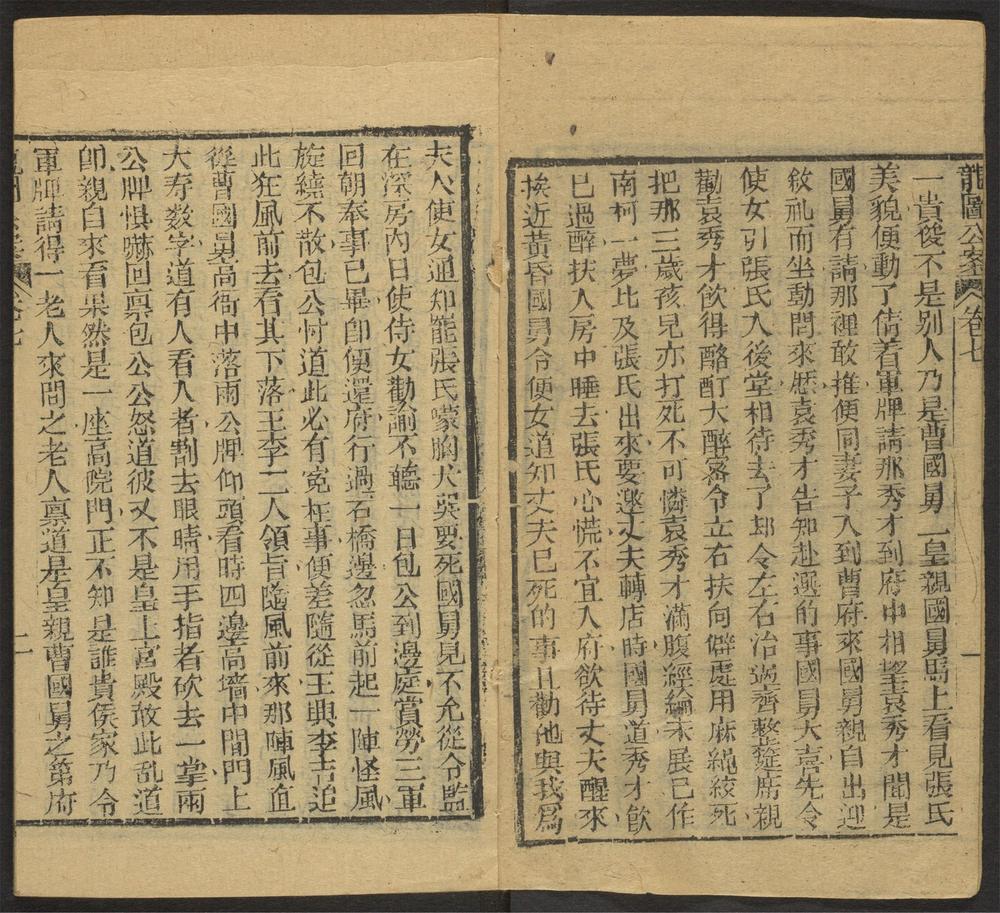 龍圖公案 卷七 一
一貴後不是别人乃是曹國舅二皇親國舅馬上看見張氏
美貌便動了情着軍牌請那秀才到府中相望袁秀才聞是
國舅有請那裡敢推便同妻子入到曹府來國舅親自出迎
敘礼而坐動問來歷袁秀才告知赴選的事國舅大喜先令
使女引張氏入後堂相待去了却令左右治酒齊整筵席親
勸袁秀才飲得酩酊大醉密令左右扶向僻處用麻繩絞死
把那三歲孩兒亦打死不可憐袁秀才滿腹經綸未展已作
南柯一夢比及張氏出來要邀丈夫轉店時國舅道秀才飲
已過醉扶入房中睡去張氏心慌不宜入府欲待丈夫醒來
挨近黃昏國舅令使女道知丈夫已死的事且勸他與我爲
夫人使女通知罷張氏嚎胸大哭要死國舅見不允從令監
在深房內日使侍女勸諭不聽一日包公到邊庭賞勞三軍
回朝奉事已畢卽便還府行過石橋邊忽馬前起一陣怪風
旋繞不散包公忖道此必有冤枉事便差隨從王興李吉追
此狂風前去看其下落王李二人領旨隨風前來那陣風直
從曹國舅高衙中落兩公牌仰頭看時四邊高墻中間門上
大寿数字道有人看人者割去眼睛用手指者砍去一掌兩
公牌惧嚇回禀包公公怒道彼又不是皇上宮殿敢此乱道
卽親自來看果然是一座高院門正不知是誰貴侯家乃令
軍牌請得一老人來問之老人禀道是皇親曹國舅之第府
卷七 二